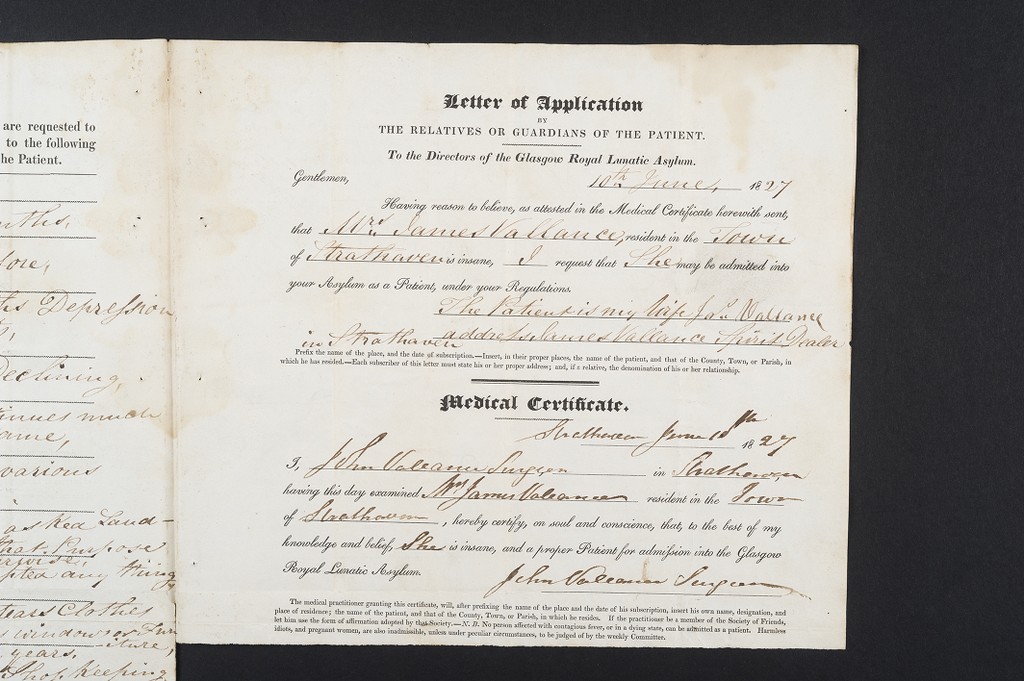 are requested to
to the following
he Patient.
nths,
fore,
his Depression
Declining,
inues much
ame,
various
asked Land-
that Purpose
pted any thing
tears Clothes
s windows or Furn
iture,
years.
Shopkeeping
Letter of Application
BY
THE RELATIVES OR GUARDIANS OF THE PATIENT.
To the Directors of the Glasgow Royal Lunatic Asylum.
Gentlemen,
10th June, 1827
Having reason to believe, as attested in the Medical Certificate herewith sent,
that Mrs James Vallance, resident in the Town
of Strathaven is insane, I request that She may be admitted into
your Asylum as a Patient, under your Regulations.
The Patient is my Wife Jas Vallance
address James Vallance Spirit Dealer
in Strathaven
Prefix the name of the place, and the date of subscription.—Insert, in their proper places, the name of the patient, and that of the County, Town, or Parish, in
which he has resided.—Each subscriber of this letter must state his or her proper address; and, if a relative, the denomination of his or her relationship.
Medical Certificate.
Strathaven June 10th 1827
I, John Vallance Surgeon in Strathaven
having this day examined Mrs James Vallance resident in the Town
of Strathaven, hereby certify, on soul and conscience, that, to the best of my
knowledge and belief, She is insane, and a proper Patient for admission into the Glasgow
Royal Lunatic Asylum.
John Vallance Surgeon
The medical practitioner granting this certificate, will, after prefixing the name of the place and the date of his subscription, insert his own name, designation, and
place of residence; the name of the patient, and that of the County, Town, or Parish, in which he resides. If the practitioner be a member of the Society of Friends,
let him use the form of affirmation adopted by that Society.—N. B. No person affected with contagious fever, or in a dying state, can be admitted as a patient. Harmless
idiots, and pregnant women, are also inadmissible, unless under peculiar circumstances, to be judged of by the weekly Committee.